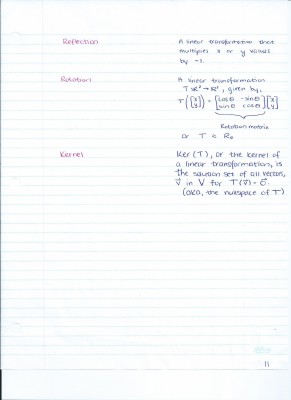 Reflection
A linear transformation that
multiplies x or y values
by -1.
Rotation
A linear transformation
T: R² → R², given by,
T([x y]) = [cosθ -sinθ sinθ cosθ][x y]
Rotation matrix
or T = Rθ
Kernel
Ker(T), or the kernel of
a linear transformation, is
the solution set of all vectors,
v⃗ in V for T(v⃗) = 0⃗.
(aka, the nullspace of T)
11